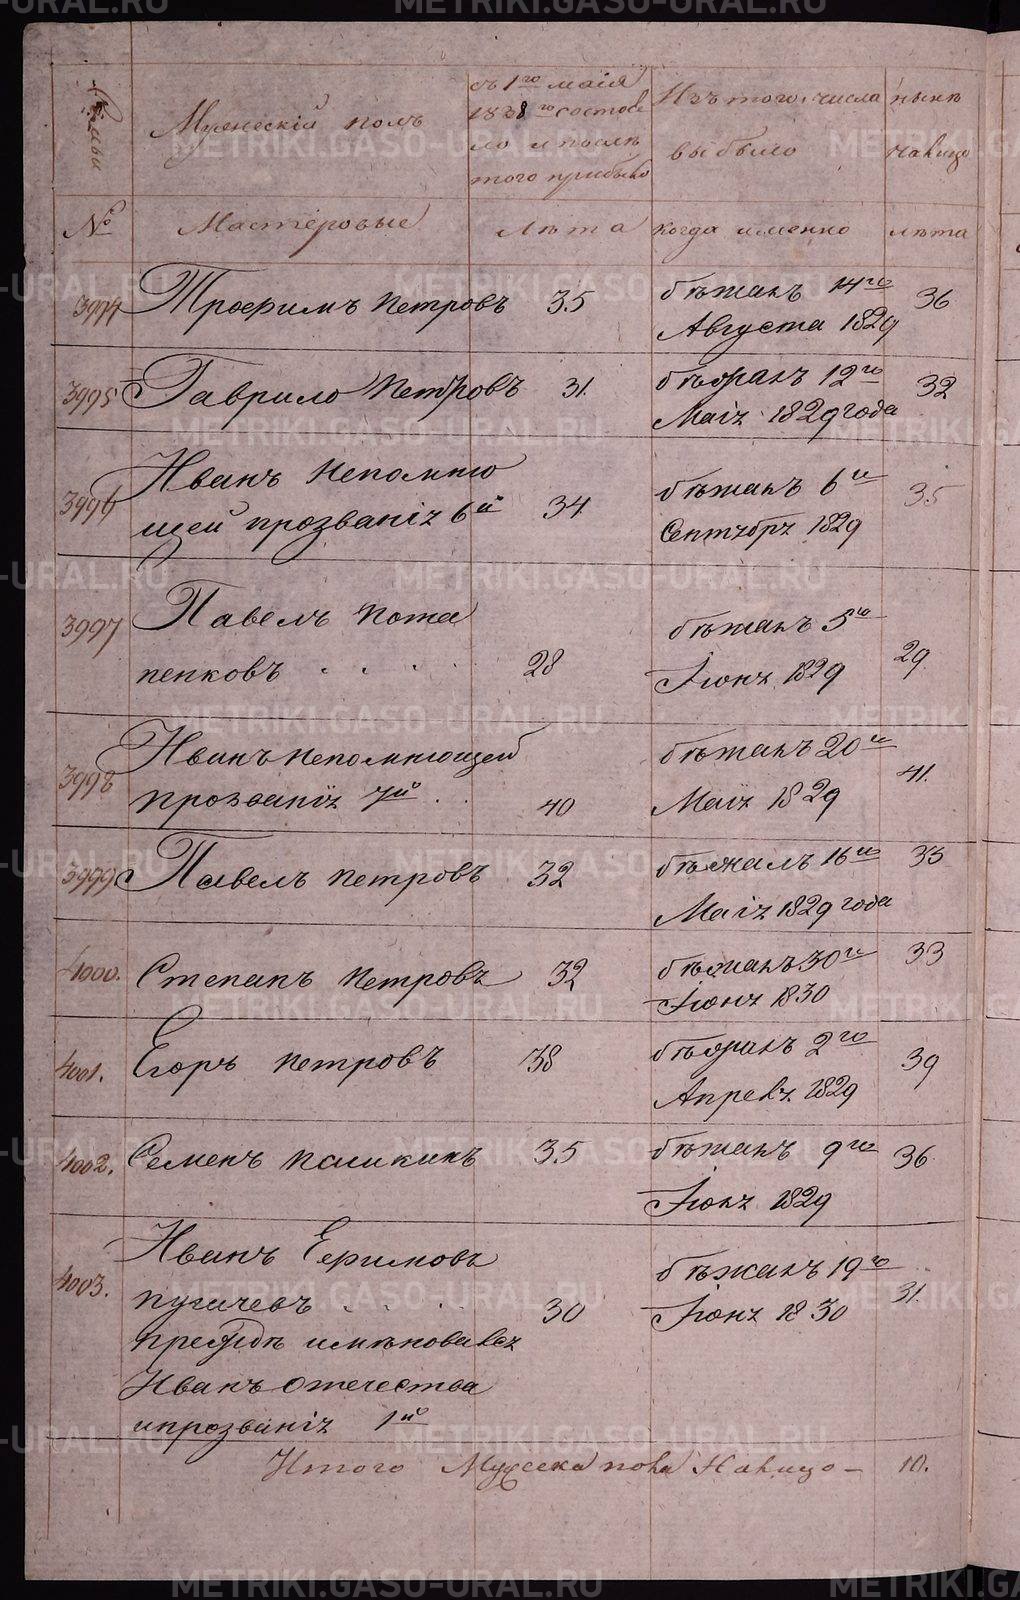 Семьи
Мужескій полъ
съ 1го маія
1828го состоя
ло и послѣ
того прибыло
Изъ того числа
выбыло
нынѣ
налицо
№
Мастеровые
Лѣта
когда именно
лѣта
3994
Трофимъ Петровъ
35
бѣжалъ 14го
Августа 1829
36
3995
Гаврило Петровъ
31.
бѣжалъ 12го
Маія 1829 года
32
3996
Иванъ Непомню
щей прозванія 6й
34
бѣжалъ 6го
Сентября 1829
35
3997
Павелъ Пота
пенковъ . . . .
28
бѣжалъ 5го
Іюня 1829
29.
3998
Иванъ Непомнющей
прозванія 7й . .
40
бѣжалъ 20го
Маія 1829
41.
3999
Павелъ Петровъ
32
бѣжалъ 16го
Маія 1829 года
33
4000.
Степанъ Петровъ
32
бѣжалъ 30го
Іюня 1830
33
4001.
Егоръ Петровъ
38
бѣжалъ 2го
Апреля 1829
39
4002.
Семенъ Пашкинъ
35
бѣжалъ 9го
Іюля 1829
36.
4003.
Иванъ Ефимовъ
Пугачевъ . . . .
прежде имѣновался
Иванъ отечества
и прозванія 1й
30
бѣжалъ 19го
Іюня 1830
31.
Итого Мужеска пола Налицо —
10.
METRIKI.GASO-URAL.RU